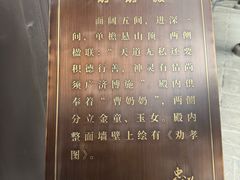 面阔五间，进深一
间，单檐悬山顶。两侧
楹联：“天道无私还要
积德行善，神灵有情尚
须广济博施”。殿内供
奉着“曹奶奶”，两侧
分立金童、玉女。殿内
整面墙壁上绘有《劝孝
图》。